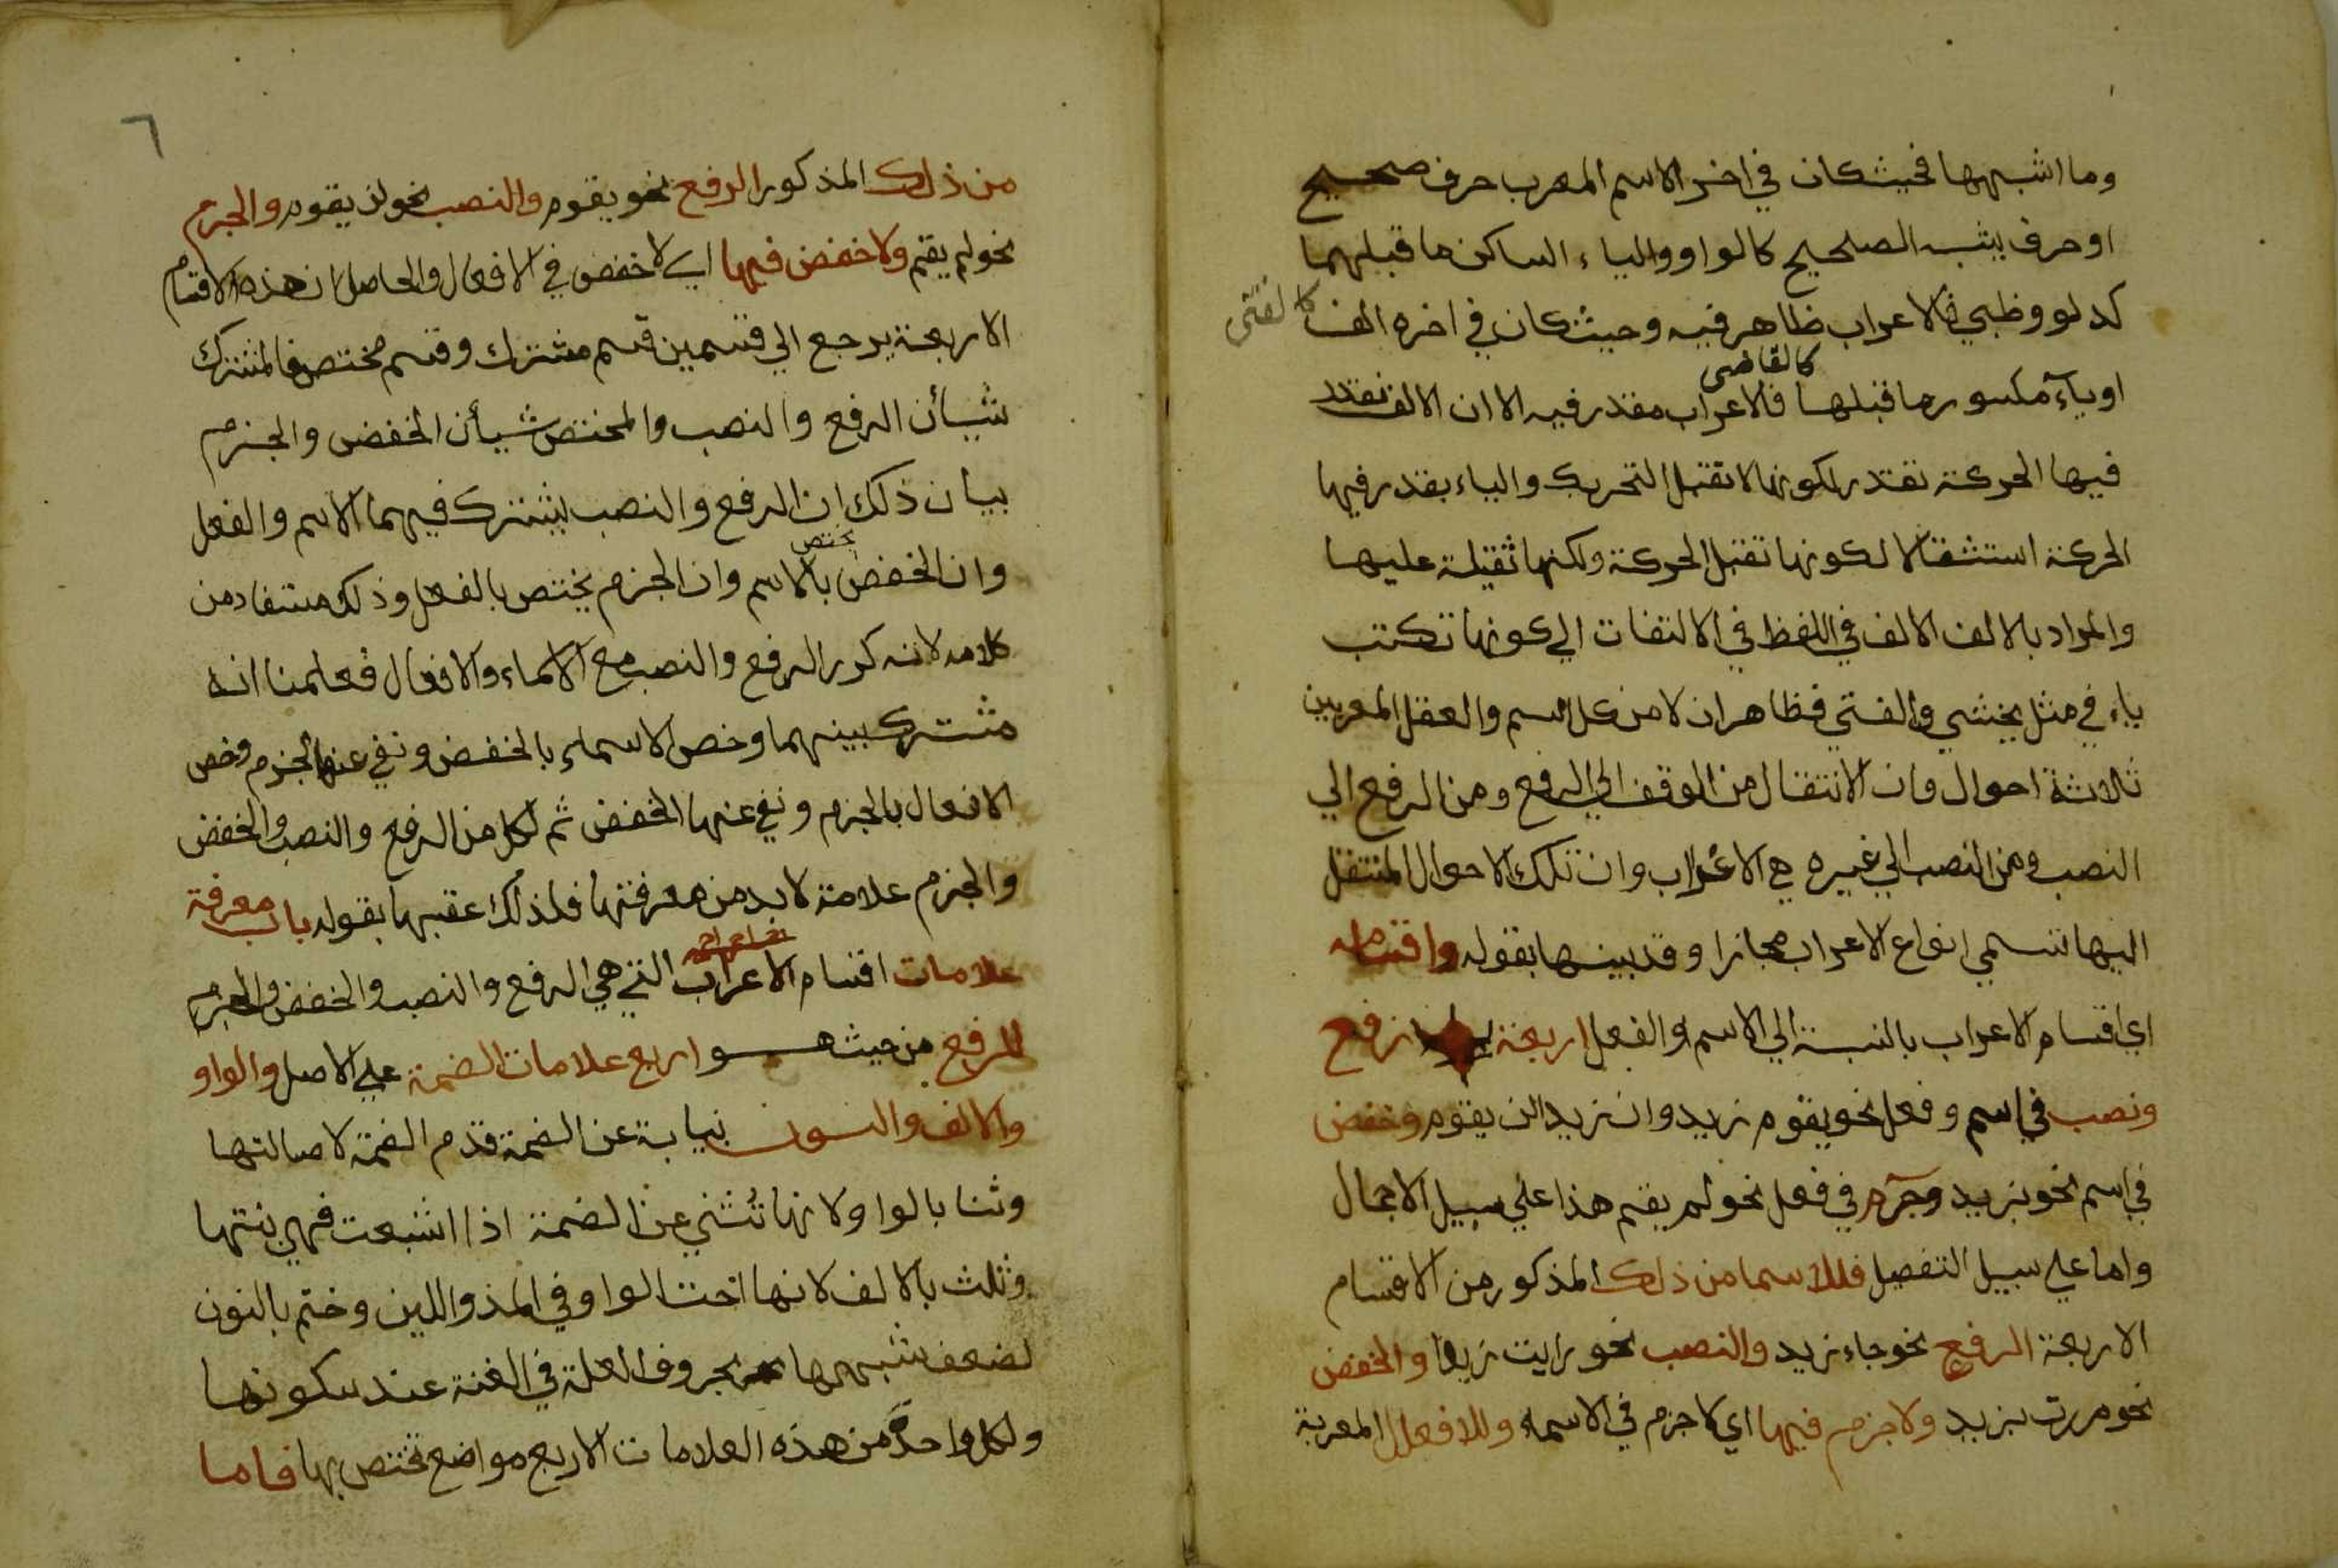 وما اشبهها فحيث كان في اخر الاسم المعرب حرف صحيح
او حرف يشبه الصحيح كالواو والياء الساكن ما قبلهما
كدلو وظبي فالاعراب ظاهر فيه وحيث كان في اخره الف كالفتى
او ياء مكسور ما قبلها كالقاضي فالاعراب مقدر فيه الا ان الالف تقدر
فيها الحركة تقدر لكونها لا تقبل التحريك والياء يقدر فيها
الحركة استثقالا لكونها تقبل الحركة ولكنها ثقيلة عليها
والمراد بالالف الالف في اللفظ في الالتفات الي كونها تكتب
ياء في مثل يخشي والفتي فظاهر ان لا من كل اسم والعقل المعربين
ثلاثة احوال وان الانتقال من الوقف الي الرفع ومن الرفع الي
النصب ومن النصب الي غيره هي الاعراب وان تلك الاحوال المنتقل
اليها تسمي انواع الاعراب مجازا وقد بينها بقوله واقسامه
اي اقسام الاعراب بالنسبة الي الاسم والفعل اربعة رفع
ونصب في اسم وفعل نحو يقوم زيد وان زيدا لن يقوم وخفض
في اسم نحو بزيد وجزم في فعل نحو لم يقم هذا علي سبيل الاجمال
واما علي سبيل التفصيل فللاسما من ذلك المذكور من الاقسام
الاربعة الرفع نحو جاء زيد والنصب نحو رايت زيدا والخفض
نحو مررت بزيد ولا جزم فيها اي لا جزم في الاسماء وللافعال المعربة
٦
من ذلك المذكور الرفع نحو يقوم والنصب نحو لن يقوم والجزم
نحو لم يقم ولا خفض فيها اي لا خفض في الافعال والحاصل ان هذه الاقسام
الاربعة يرجع الي قسمين قسم مشترك وقسم مختص فالمشترك
شيأن الرفع والنصب والمختص شيأن الخفض والجزم
بيان ذلك ان الرفع والنصب يشترك فيهما الاسم والفعل
وان الخفض يختص بالاسم وان الجزم يختص بالفعل وذلك مستفاد من
كلامه لانه كرر الرفع والنصب مع الاسماء والافعال فعلمنا انه
مشترك بينهما وخص الاسماء بالخفض ونفي عنها الجزم وخص
الافعال بالجزم ونفي عنها الخفض ثم لكل من الرفع والنصب والخفض
والجزم علامة لا بد من معرفتها فلذلك عقبها بقوله باب معرفة
علامات اقسام الاعراب التي هي الرفع والنصب والخفض والجزم
للرفع من حيث هو اربع علامات الضمة علي الاصل والواو
والالف والنون نيابة عن الضمة قدم الضمة لاصالتها
وثنا بالواو لانها تنشئ عن الضمة اذا اشبعت فهي بنتها
وثلث بالالف لانها اخت الواو في المد واللين وختم بالنون
لضعف شبهها بحروف العلة في الغنة عند سكونها
ولكل واحدة من هذه العلامات الاربع مواضع تختص بها فاما